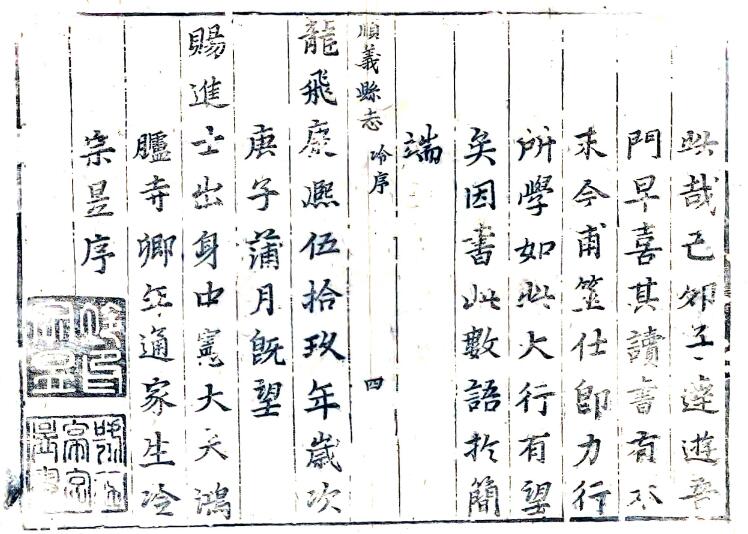 此哉己卯子遴遊吾
門早喜其讀書有本
末今甫筮仕即力行
所學如此大行有望
矣因書此數語於簡
端
順義縣志 冷序 四
龍飛康熙伍拾玖年歲次
庚子蒲月既望
賜進士出身中憲大夫鴻
臚寺卿年通家生冷
宗昱序